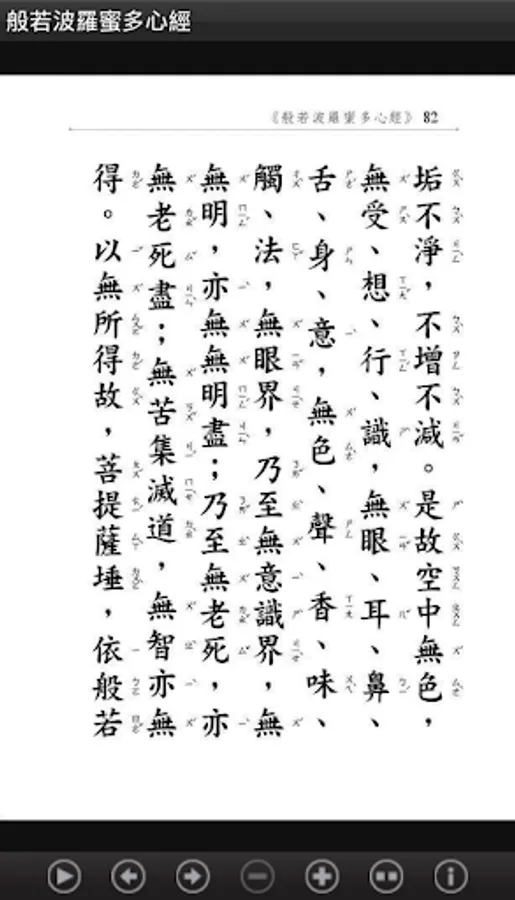 般若波羅蜜多心經
《般若波羅蜜多心經》 82
垢不淨，不增不減。是故空中無色，
無受、想、行、識，無眼、耳、鼻、
舌、身、意，無色、聲、香、味、
觸、法，無眼界，乃至無意識界，無
無明，亦無無明盡；乃至無老死，亦
無老死盡；無苦集滅道，無智亦無
得。以無所得故，菩提薩埵，依般若